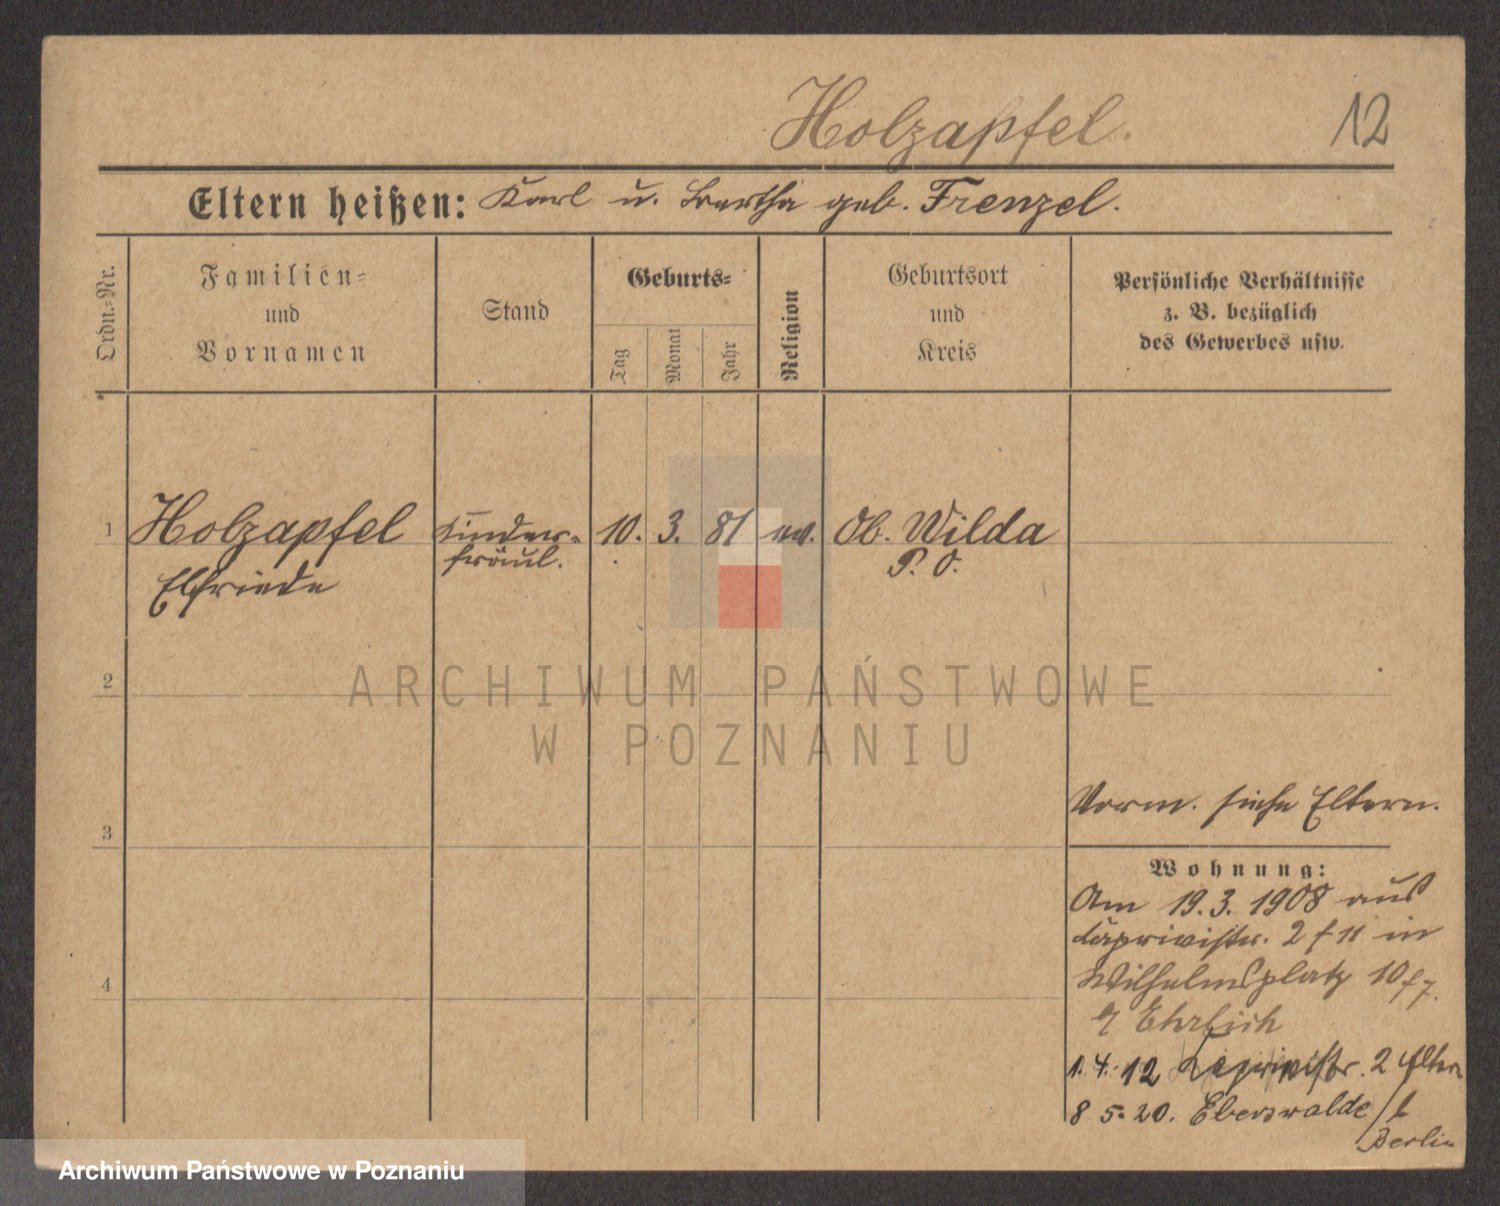 Holzapfel. 12
Eltern heißen: Karl u. Bertha geb. Frenzel.
Ordn.-Nr.
Familien-
und
Vornamen
Stand
Geburts-
Tag
Monat
Jahr
Religion
Geburtsort
und
Kreis
Persönliche Verhältnisse
z. B. bezüglich
des Gewerbes usw.
1 Holzapfel Kinder- 10. 3. 81 ev. Ob. Wilda
Elfriede fräul. P. O.
2
ARCHIWUM PAŃSTWOWE
W POZNANIU
Vorm. siehe Eltern.
3
Wohnung:
Am 19. 3. 1908 aus
Caprivistr. 2 f 11 in
4 Wilhelmsplatz 10 f 7.
Ehrlich
1. 4. 12 Caprivistr. 2 Eltern
8 5. 20. Eberswalde /b
Berlin
Archiwum Państwowe w Poznaniu